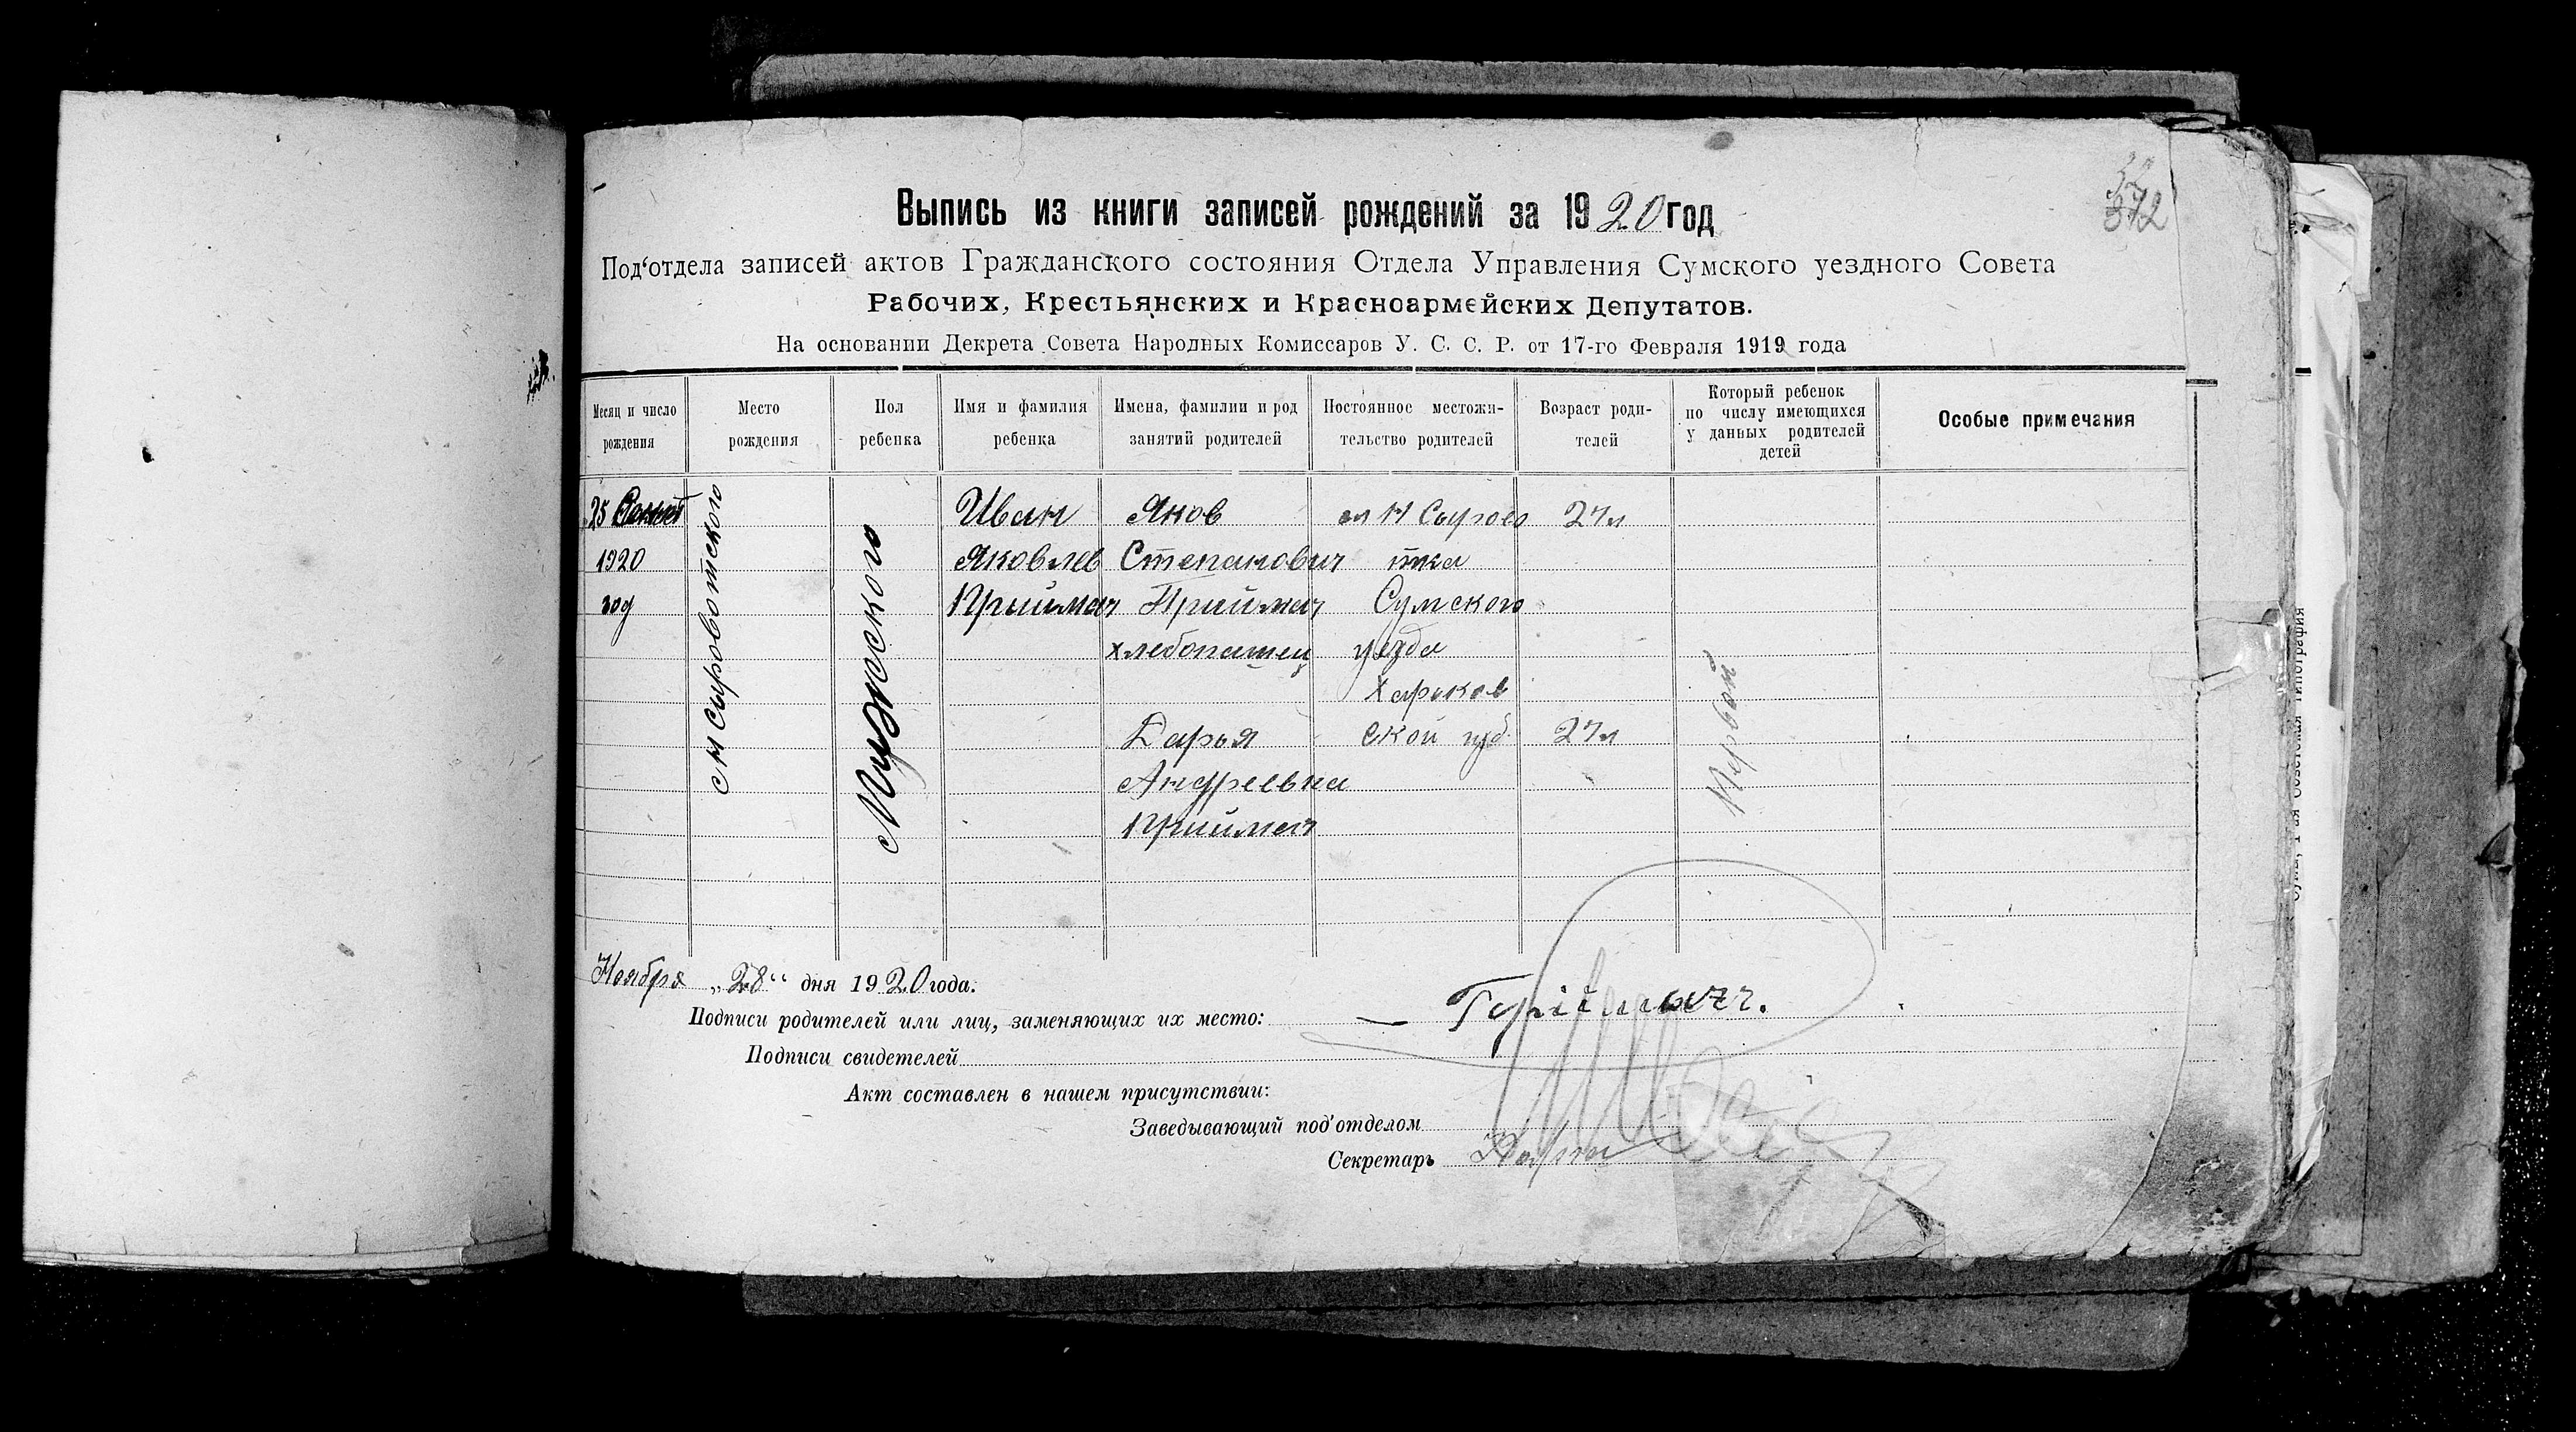 32
Выпись из книги записей рождений за 1920 год
Под'отдела записей актов Гражданского состояния Отдела Управления Сумского уездного Совета
Рабочих, Крестьянских и Красноармейских Депутатов.
На основании Декрета Совета Народных Комиссаров У. С. С. Р. от 17-го Февраля 1919 года
Месяц и число рождения
Место рождения
Пол ребенка
Имя и фамилия ребенка
Имена, фамилии и род занятий родителей
Постоянное местожительство родителей
Возраст родителей
Который ребенок по числу имеющихся у данных родителей детей
Особые примечания
25
1920
год
с Н Сыровотского
Мужского
Иван
Яковлев
Приймач
Яков
Степанович
Приймач
хлебопашец
Дарья
Андреевна
Приймач
сл Н Сырово
тка
Сумского
уезда
Харьков
ской губ.
27 л
27 л
Первой
Ноября „28“ дня 1920 года.
Подписи родителей или лиц, заменяющих их место:
Подписи свидетелей
Акт составлен в нашем присутствии:
Заведывающий под'отделом
Секретарь
Советская типография